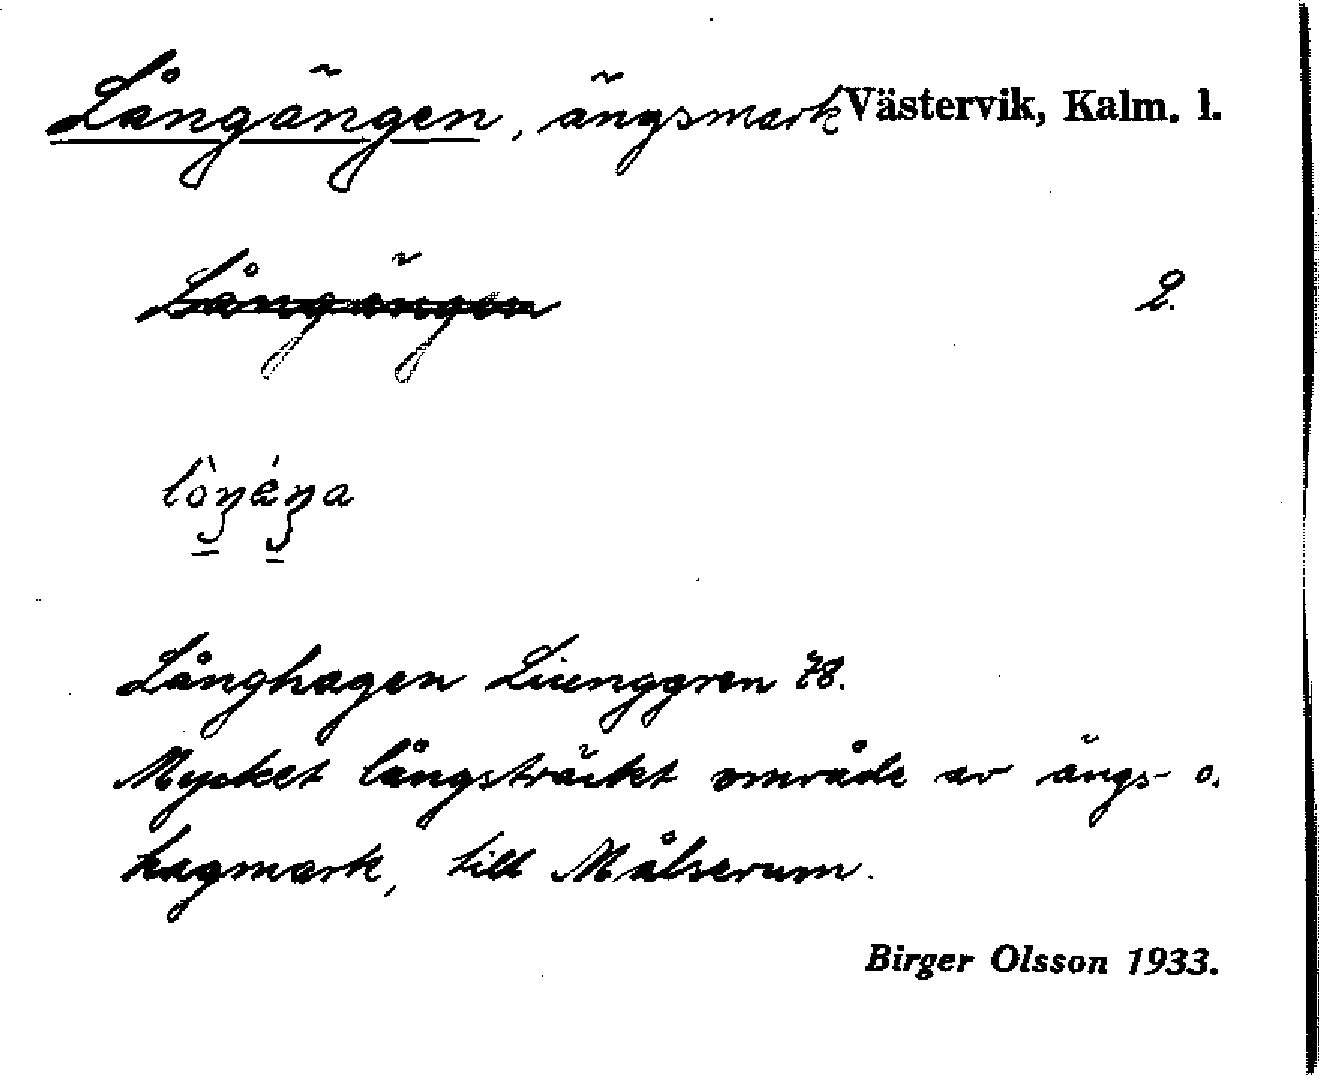 Långängen, ängsmark Västervik, Kalm. l.
Långängen 2.
Långhagen Liienggren 78.
Mycket långsträckt område av ängs- o.
hagmark, till Målserum.
Birger Olsson 1933.